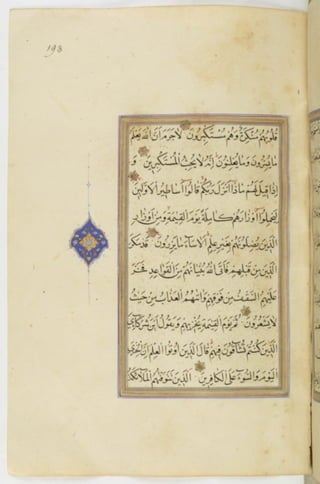 193
قُلُوبُهُمْ مُنْكِرَةٌ وَهُمْ مُسْتَكْبِرُونَ لَاجَرَمَ اَنَّ اللهَ يَعْلَمُ
مَا يُسِرُّونَ وَمَا يُعْلِنُونَ اِنَّهُ لَا يُحِبُّ الْمُسْتَكْبِرِينَ وَ
اِذَا قِيلَ لَهُمْ مَاذَا اَنْزَلَ رَبُّكُمْ قَالُوا اَسَاطِيرُ الْاَوَّلِينَ
لِيَحْمِلُوا اَوْزَارَهُمْ كَامِلَةً يَوْمَ الْقِيمَةِ وَمِنْ اَوْزَارِ
الَّذِينَ يُضِلُّونَهُمْ بِغَيْرِ عِلْمٍ اَلَا سَاءَ مَا يَزِرُونَ قَدْ مَكَرَ
الَّذِينَ مِنْ قَبْلِهِمْ فَاَتَى اللهُ بُنْيَانَهُمْ مِنَ الْقَوَاعِدِ فَخَرَّ
عَلَيْهِمُ السَّقْفُ مِنْ فَوْقِهِمْ وَاَتٰيهُمُ الْعَذَابُ مِنْ حَيْثُ
لَا يَشْعُرُونَ ثُمَّ يَوْمَ الْقِيمَةِ يُخْزِيهِمْ وَيَقُولُ اَيْنَ شُرَكَائِيَ
الَّذِينَ كُنْتُمْ تُشَاقُّونَ فِيهِمْ قَالَ الَّذِينَ اُوتُوا الْعِلْمَ اِنَّ الْخِزْيَ
الْيَوْمَ وَالسُّوءَ عَلَى الْكَافِرِينَ الَّذِينَ تَتَوَفّٰيهُمُ الْمَلٰئِكَةُ